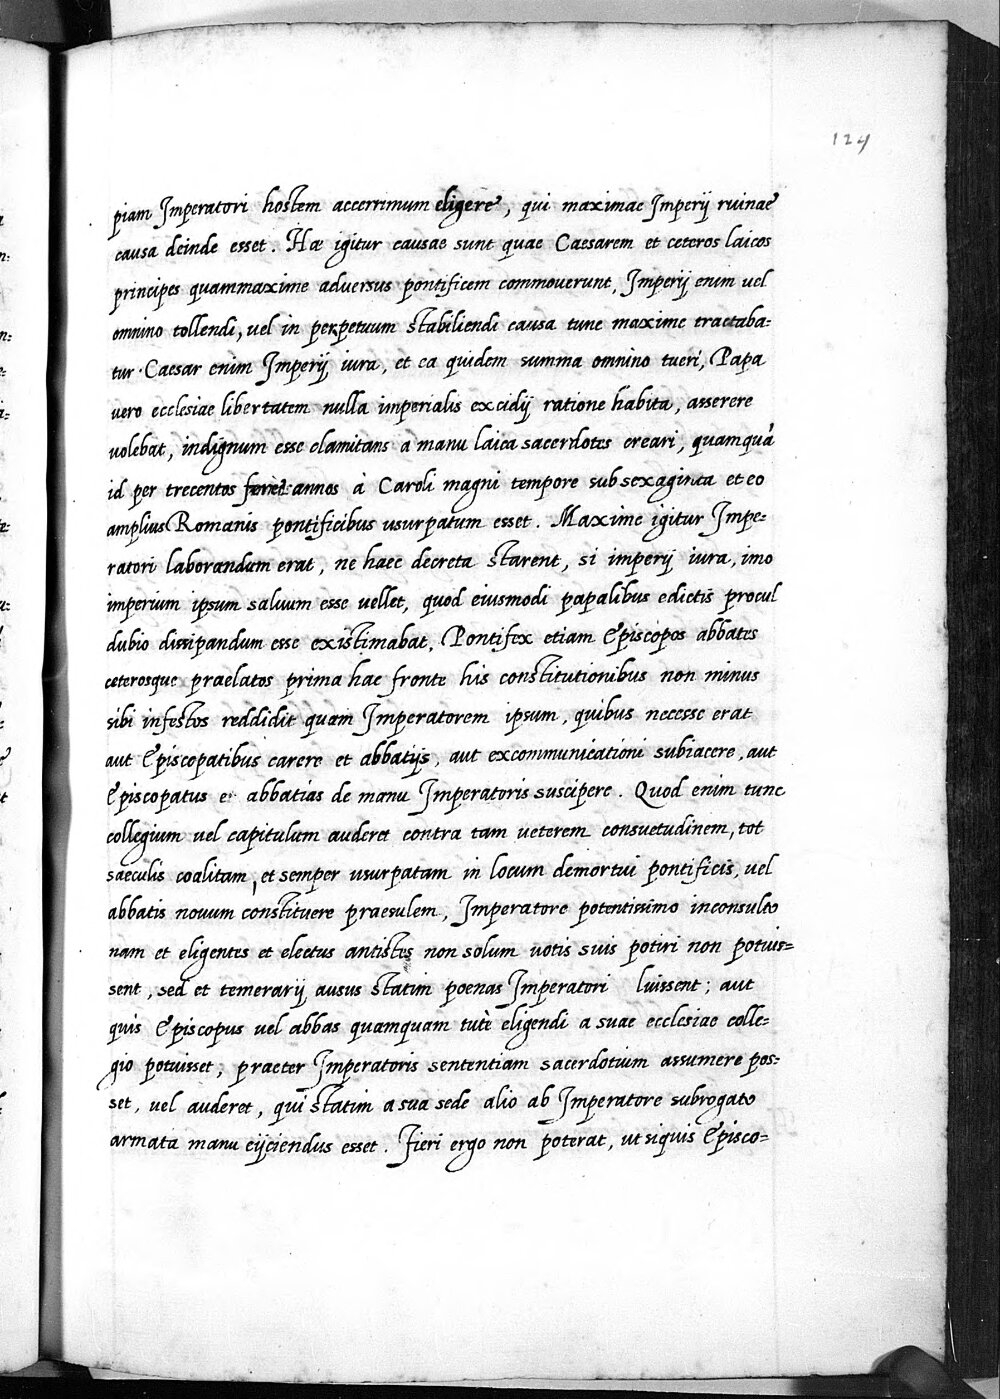 124
piam Imperatori hostem accerrimum eligere, qui maximae Imperij ruinae
causa deinde esset. Hae igitur causae sunt quae Caesarem et ceteros laicos
principes quammaxime adversus pontificem commoverunt, Imperij enim vel
omnino tollendi, vel in perpetuum stabiliendi causa tunc maxime tractaba=
tur. Caesar enim Imperij iura, et ea quidem summa omnino tueri, Papa
vero ecclesiae libertatem nulla imperialis excidij ratione habita, asserere
volebat, indignum esse clamitans a manu laica sacerdotes creari, quamquā
id per trecentos fere annos à Caroli magni tempore sub sexaginta et eo
amplius Romanis pontificibus usurpatum esset. Maxime igitur Impe=
ratori laborandum erat, ne haec decreta starent, si imperij iura, imo
imperium ipsum salvum esse vellet, quod eiusmodi papalibus edictis procul
dubio dissipandum esse existimabat. Pontifex etiam Episcopos abbates
ceterosque praelatos prima hac fronte his constitutionibus non minus
sibi infestos reddidit quam Imperatorem ipsum, quibus necesse erat
aut Episcopatibus carere et abbatijs, aut excommunicationi subiacere, aut
Episcopatus et abbatias de manu Imperatoris suscipere. Quod enim tunc
collegium vel capitulum auderet contra tam veterem consuetudinem, tot
saeculis coalitam, et semper usurpatam in locum demortui pontificis, vel
abbatis novum constituere praesulem, Imperatore potentissimo inconsulto
nam et eligentes et electus antistes non solum votis suis potiri non potuis=
sent, sed et temerarij ausus statim poenas Imperatori luissent; aut
quis Episcopus vel abbas quamquam tutè eligendi a suae ecclesiae colle=
gio potuisset, praeter Imperatoris sententiam sacerdotium assumere pos=
set, vel auderet, qui statim a sua sede alio ab Imperatore subrogato
armata manu eijciendus esset. Fieri ergo non poterat, ut siquis Episco=